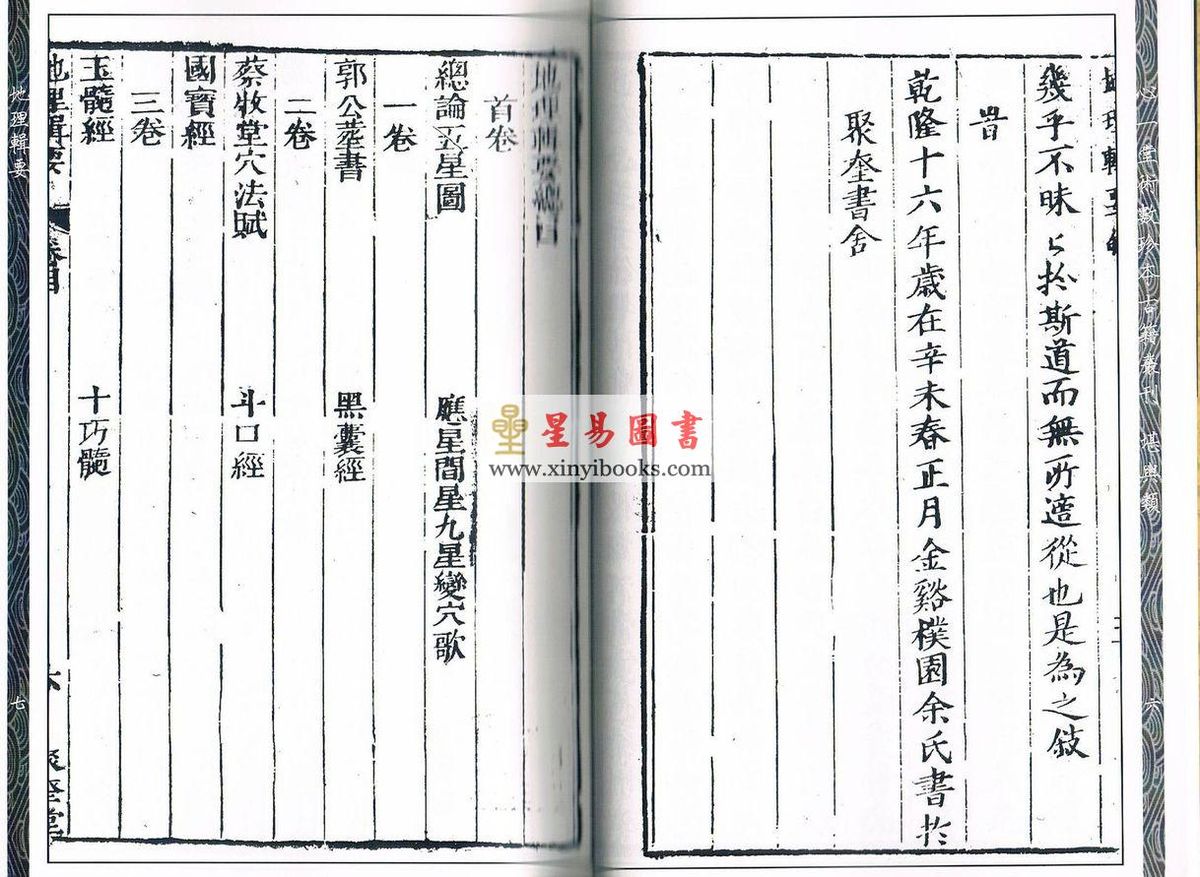 心一堂術數珍本古籍叢刊 堪輿類
六
幾乎不昧昧扵斯道而無所適從也是為之敍
旹
乾隆十六年歲在辛未春正月金谿樸園余氏書扵
聚奎書舍
地理輯要總目
首卷
總論五星圖 應星間星九星變穴歌
一卷
郭公葬書 黑囊經
二卷
蔡牧堂穴法賦 斗口經
國寶經
三卷
玉髓經 十巧髓
地理輯要 卷目
地理輯要
七
星易圖書
www.xinyibooks.com